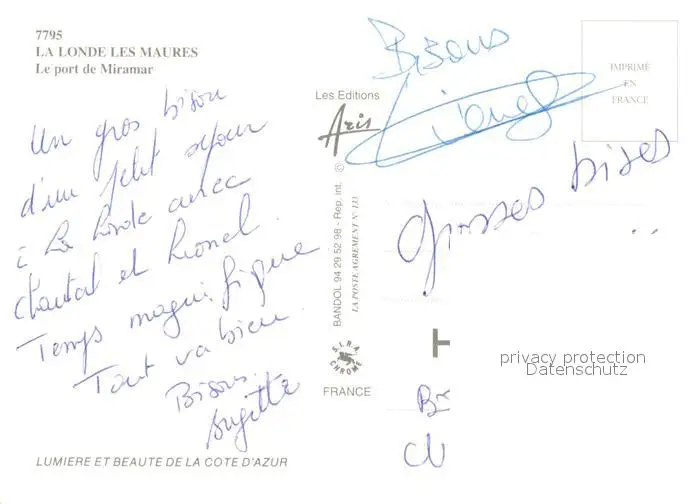 7795
LA LONDE LES MAURES
Le port de Miramar
Un gros bisou
d'un petit séjour
à La Londe avec
Chantal et Lionel.
Temps magnifique
Tout va bien.
Bisous.
Brigitte
LUMIERE ET BEAUTE DE LA COTE D'AZUR
Les Editions
Aris
BANDOL 94 29.52.98 - Rep. int. ©
LA POSTE AGREMENT N° 133
S.I.R.A.
CHROME
FRANCE
Bisous
Lionel
IMPRIMÉ
EN
FRANCE
Grosses bises
privacy protection
Datenschutz